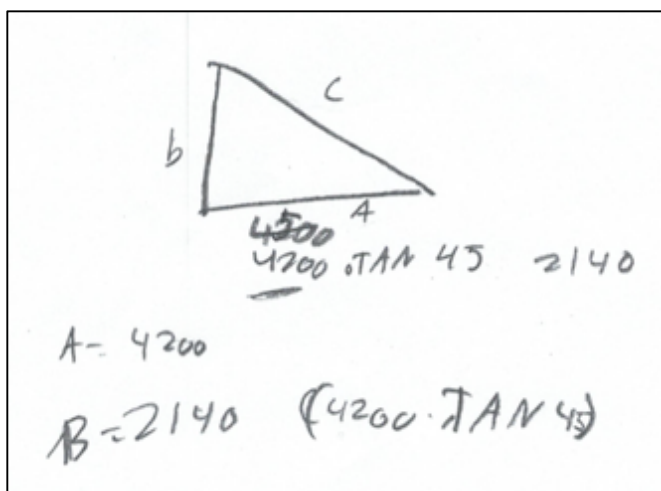 C
b
A
4500
4200 . TAN 45 2140
A- 4200
B=2140 (4200 . TAN 45)